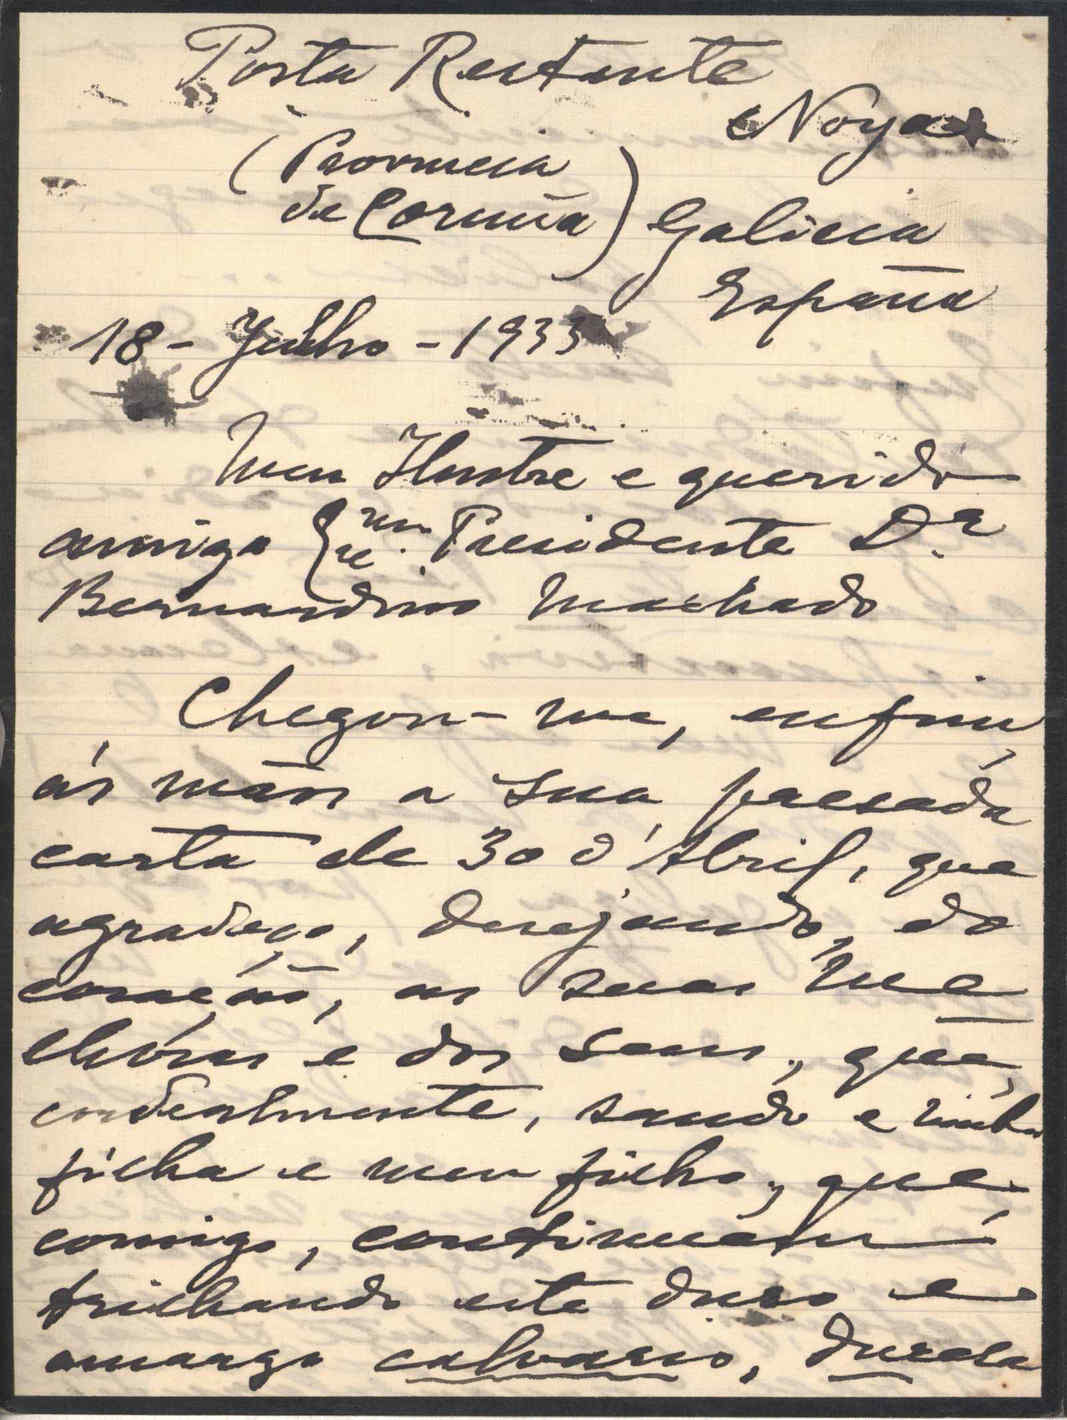 Posta Restante
Noya
(Provincia
de Coruña) Galicia
España
18 - Julho - 1933
Meu Ilustre e querido
amigo Snr. Presidente Dr.
Bernardino Machado
Chegou-me, enfim,
ás mãos a sua passada
carta de 30 d'Abril, que
agradeço, desejando, do
coração, as suas me
lhóras e dos seus, que,
cordealmente, saudo e minha
filha e meu filho, que
comigo, continuam
trilhando este duro e
amargo calvario,